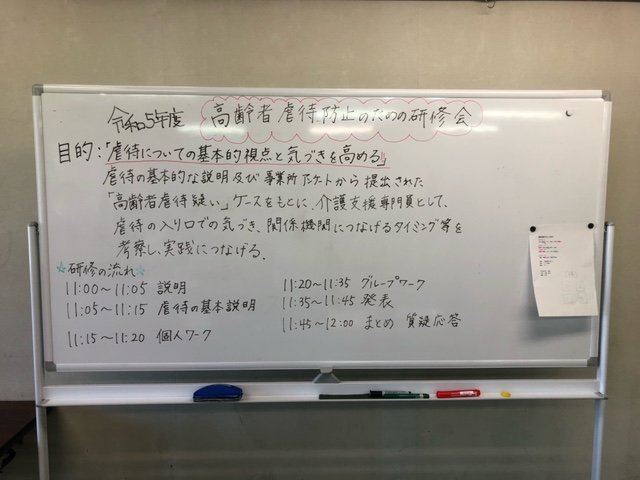 令和5年度 高齢者虐待防止のための研修会
目的:「虐待についての基本的視点と気づきを高める」
虐待の基本的な説明及び事業所アンケートから提出された
「高齢者虐待疑い」ケースをもとに、介護支援専門員として、
虐待の入り口での気づき、関係機関につなげるタイミング等を
考察し、実践につなげる。
☆研修の流れ☆
11:00～11:05 説明
11:05～11:15 虐待の基本説明
11:15～11:20 個人ワーク
11:20～11:35 グループワーク
11:35～11:45 発表
11:45～12:00 まとめ 質疑応答